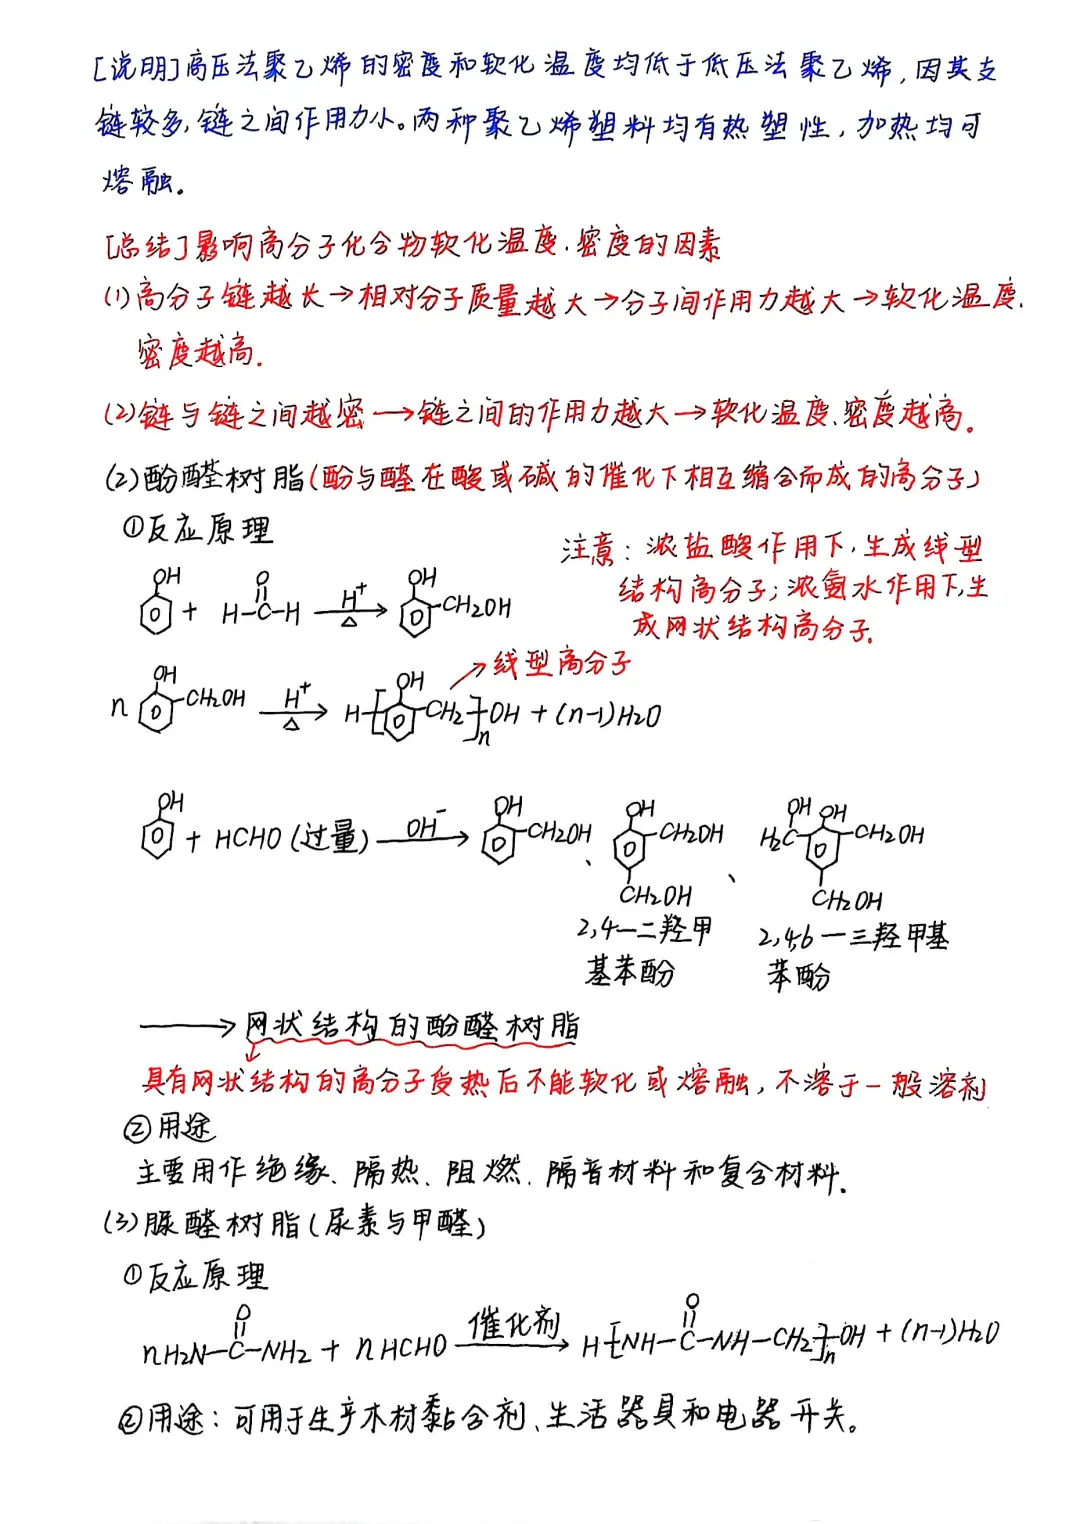 [说明]高压法聚乙烯的密度和软化温度均低于低压法聚乙烯,因其支
链较多,链之间作用力小。两种聚乙烯塑料均有热塑性,加热均可
熔融。
[总结]影响高分子化合物软化温度、密度的因素
(1)高分子链越长→相对分子质量越大→分子间作用力越大→软化温度、
密度越高.
(2)链与链之间越密→链之间的作用力越大→软化温度、密度越高。
(2)酚醛树脂(酚与醛在酸或碱的催化下相互缩合而成的高分子)
①反应原理
注意:浓盐酸作用下,生成线型
结构高分子;浓氨水作用下,生
成网状结构高分子.
OH O OH
+ H-C-H H+ △ CH2OH
→线型高分子
OH OH
n CH2OH H+ △ H-[ CH2]n OH + (n-1)H2O
OH OH OH OH OH
+ HCHO (过量) OH- CH2OH、 CH2OH、 H2C CH2OH
CH2OH CH2OH
2,4-二羟甲 2,4,6-三羟甲基
基苯酚 苯酚
→网状结构的酚醛树脂
具有网状结构的高分子受热后不能软化或熔融,不溶于一般溶剂
②用途
主要用作绝缘、隔热、阻燃、隔音材料和复合材料.
(3)脲醛树脂(尿素与甲醛)
①反应原理
O O
nH2N-C-NH2 + nHCHO 催化剂→ H[NH-C-NH-CH2]nOH + (n-1)H2O
②用途:可用于生产木材黏合剂、生活器具和电器开关。